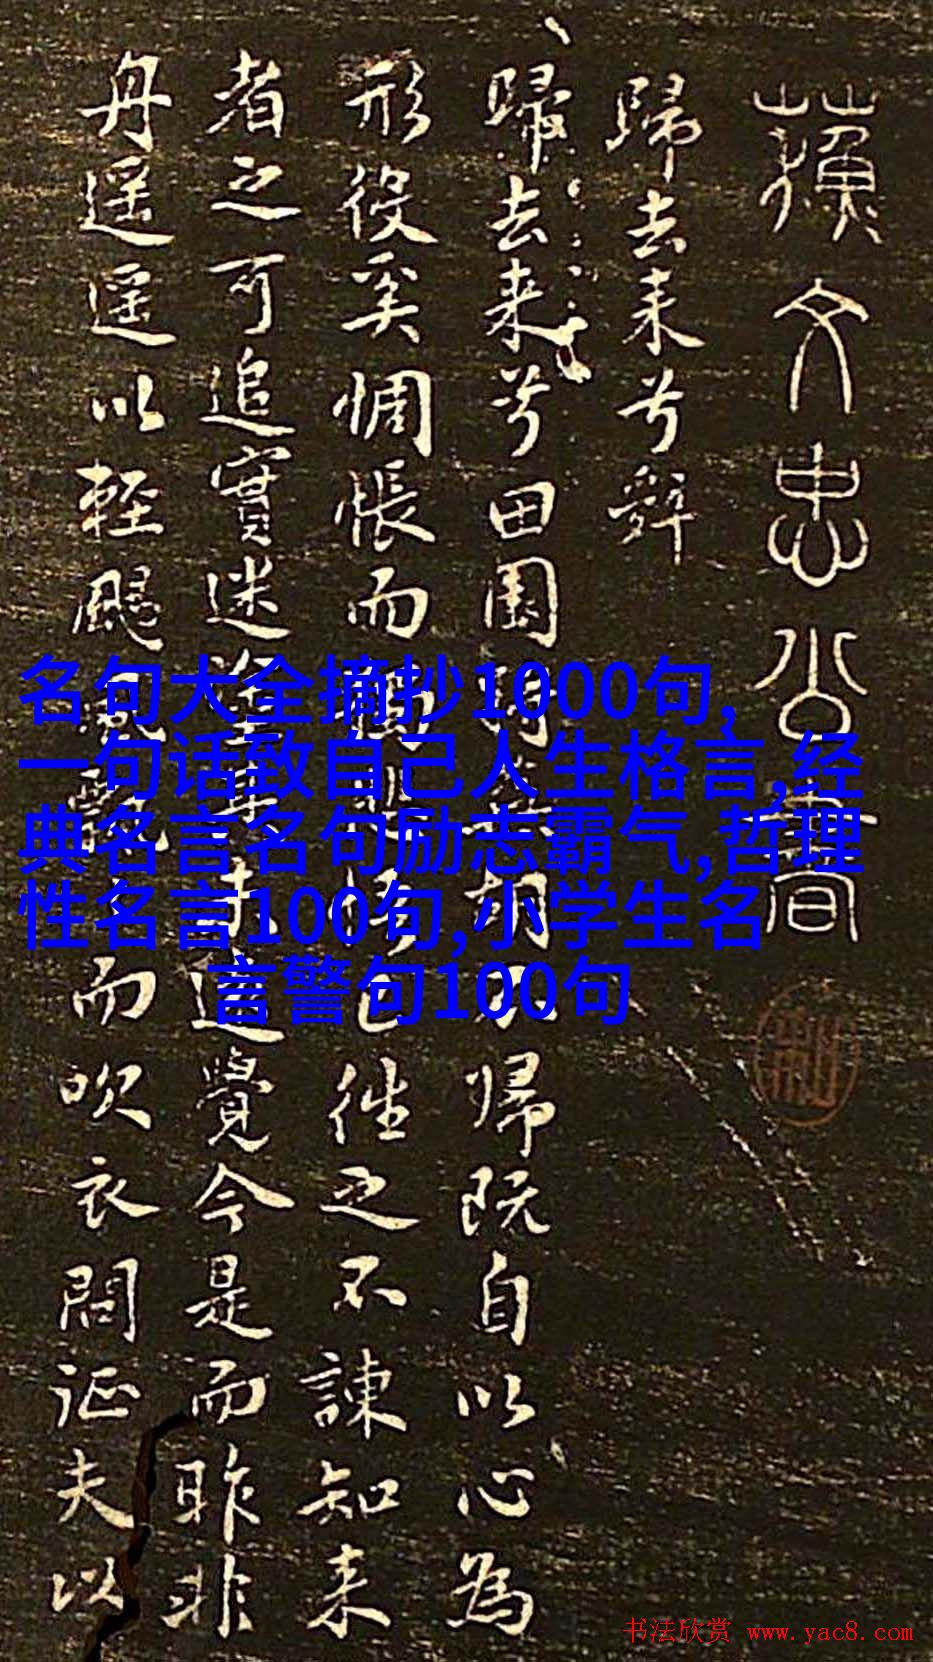 蘓文忠公書
歸去来兮辤
歸去来兮田園将蕪胡不帰既自以心為
形役奚惆悵而獨悲悟已往之不諫知来
者之可追實迷途其未遠覺今是而昨非
舟遥遥以輕颺風飄而吹衣問征夫以
名句大全摘抄1000句,
一句话致自己人生格言,经
典名言名句励志霸气,哲理
性名言100句,小学生名
言警句100句
书法欣赏 www.yac8.com